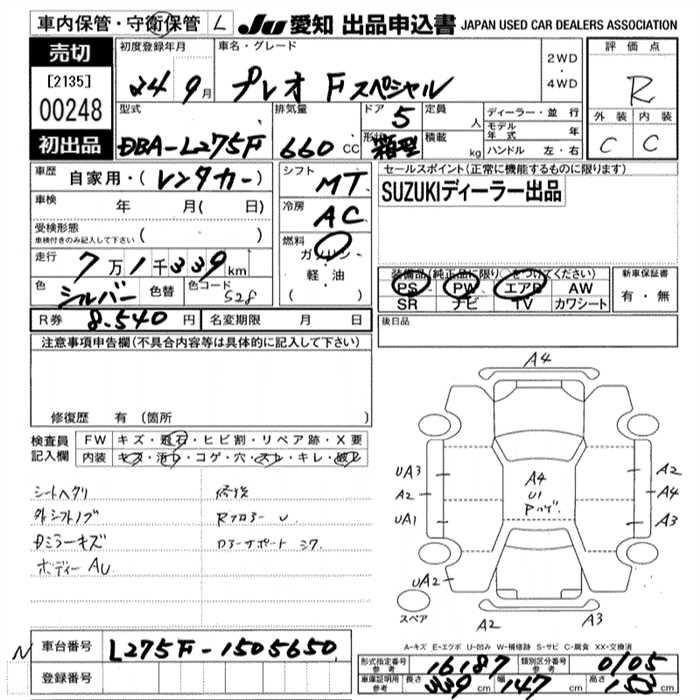 車内保管・守衛保管 L JU 愛知 出品申込書 JAPAN USED CAR DEALERS ASSOCIATION
売切
[2135]
00248
初出品
初度登録年月
24 9月
車名・グレード
プレオ Fスペシャル
2WD
・
4WD
評価点
R
外装 内装
C C
型式
DBA-L275F
排気量
660 CC
ドア 5
形状 箱型
定員 人
積載 kg
ディーラー・並行
モデル年式 年
ハンドル 左・右
車歴 自家用・(レンタカー)
車検 年 月( 日)
受検形態
車検付きのみ記入して下さい ( )
走行 7万1千339km
色 シルバー 色替 色コード S28
シフト MT
冷房 AC
燃料 ガソリン
・
軽・油
( )
セールスポイント(正常に機能するものに限ります)
SUZUKIディーラー出品
装備品(純正品に限り○をつけてください)
PS PW エアB AW
SR ナビ TV カワシート
新車保証書
有・無
R券 8.540円 名変期限 月 日
後日品
注意事項申告欄(不具合内容等は具体的に記入して下さい)
修復歴 有(箇所
検査員記入欄
FW キズ・飛石・ヒビ割・リペア跡・X要
内装 キズ・汚レ・コゲ・穴・スレ・キレ・破レ
シートヘタリ
外シフトノブ
Dミラーキズ
ボディー AU
修復
Rフロアー U
A4
UA3
A2
UA1
UA2
A4
U1
Pハゲ
A2
A4
A3
A2
A3
スペア
A-キズ E-エクボ U-凹み W-補修跡 S-サビ C-腐食 XX-交換済
N 車台番号 L275F-1505650
登録番号
形式指定番号 参考 16187 類別区分番号 参考 0105
車庫証明用 参考 長さ 339cm 幅 147cm 高さ 153cm